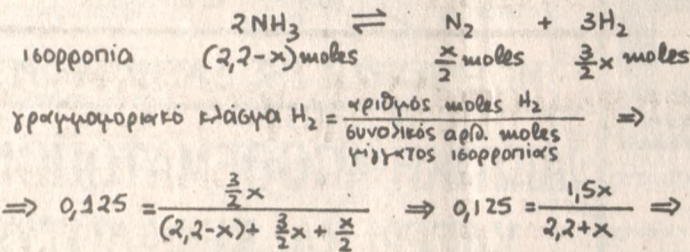 2NH₃ ⇌ N₂ + 3H₂
ισορροπία (2,2-x)moles x/2 moles 3/2 x moles
γραμμομοριακό κλάσμα H₂ = αριθμός moles H₂ / συνολικός αριθ. moles μίγματος ισορροπίας ⇒
⇒ 0,125 = 3/2 x / (2,2-x) + 3/2 x + x/2 ⇒ 0,125 = 1,5x / 2,2+x ⇒